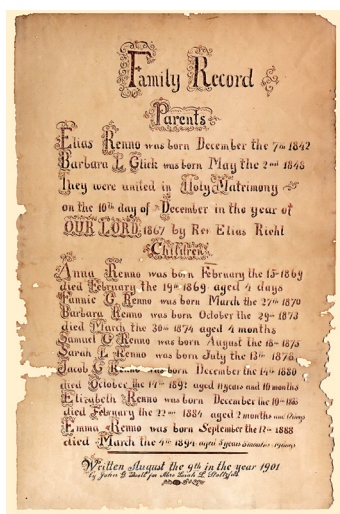 Family Record
Parents
Elias Renno was born December the 7th 1842
Barbara L Glick was born May the 2nd 1848
They were united in Holy Matrimony
on the 10th day of December in the year of
OUR LORD 1867 by Rev Elias Rieht
Children
Anna Renno was born February the 15 1869
died February the 19th 1869 aged 4 days
Fannie G Renno was born March the 27th 1870
Barbara Renno was born October the 29th 1873
died March the 30th 1874 aged 4 months
Samuel G Renno was born August the 18th 1875
Sarah L Renno was born July the 13th 1878
Jacob G Renno was born December the 14th 1880
died October the 14th 1892 aged 11 years and 10 months
Elizabeth Renno was born December the 10th 1883
died February the 22nd 1884 aged 2 months and days
Emma Renno was born September the 17th 1888
died March the 4th 1894 aged 5 years 5 months days
Written August the 9th in the year 1901
by John B for Mrs Sarah L